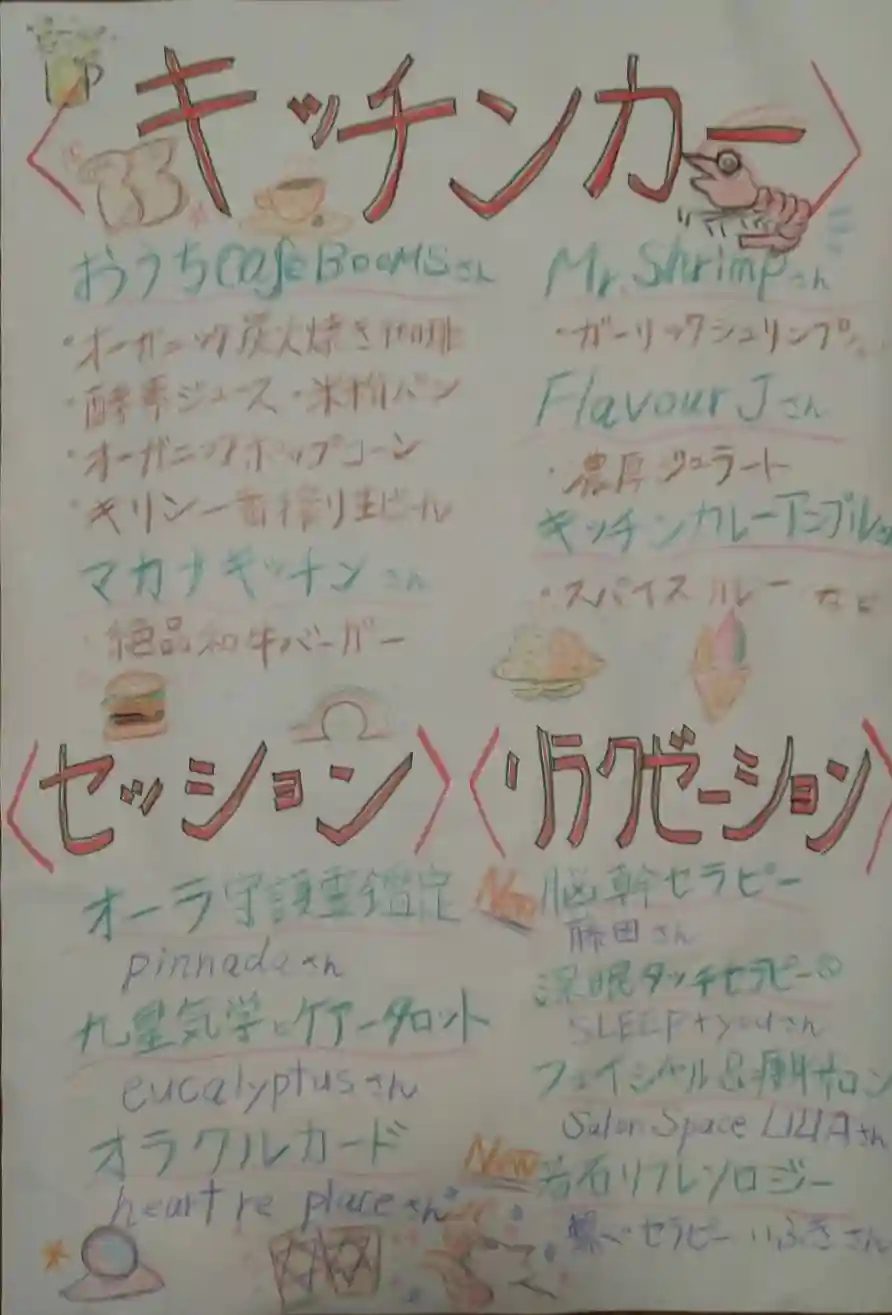 〈キッチンカー〉
おうちCafe BOOMSさん
・オーガニック炭火焼き珈琲
・酵素ジュース・米粉パン
・オーガニックポップコーン
・キリン一番搾り生ビール
マカナキッチンさん
・絶品和牛バーガー
Mr. Shrimpさん
・ガーリックシュリンプ
Flavour Jさん
・濃厚ジェラート
キッチンカレーアンプル
・スパイスカレー など
〈セッション〉
オーラ守護霊鑑定
pinnadaさん
九星気学とケアータロット
eucalyptusさん
オラクルカード
heart re placeさん
〈リラクゼーション〉
New 脳幹セラピー
藤田さん
深眠タッチセラピー®
SLEEP+youさん
フェイシャル&痩サロン
Salon Space LILIAさん
New 岩石リフレソロジー
セラピー いぶきさん